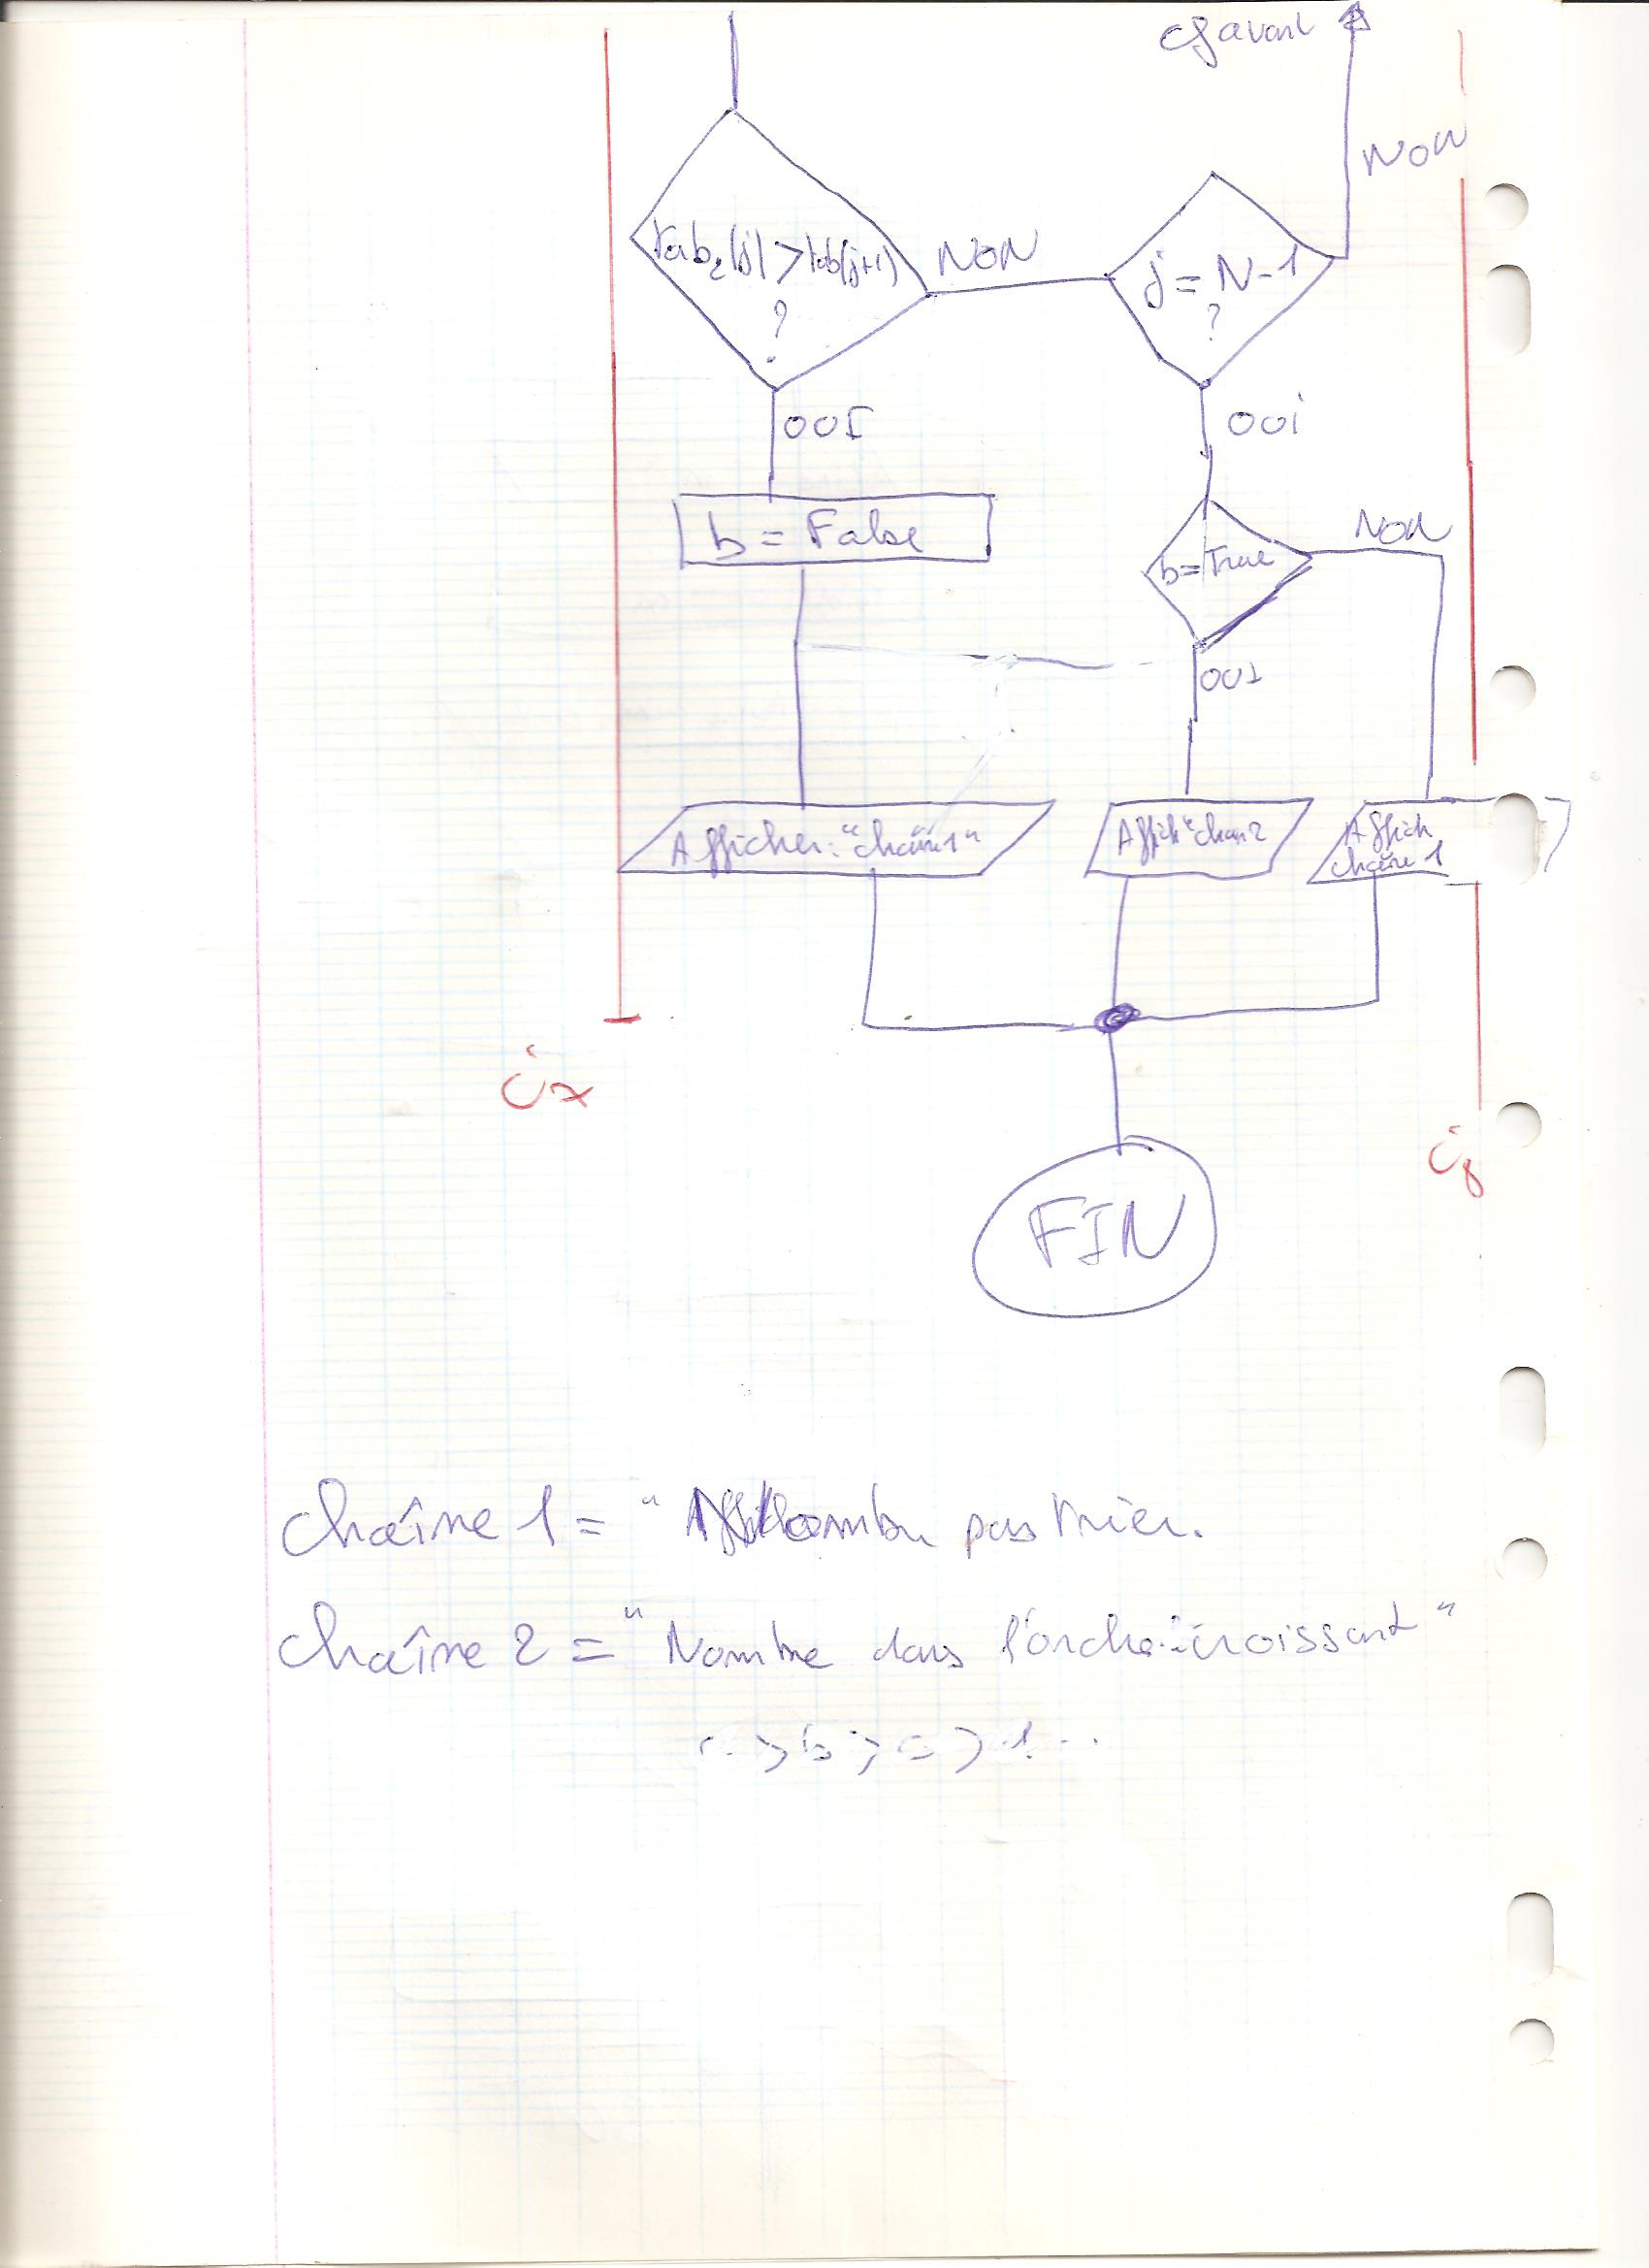 cf avant
NON
tab2(j) > tab(j+1)
?
NON
j = N-1
?
OUI
OUi
b = False
b = True
NON
OUI
Afficher: "chaîne1"
Affich "chan2
Affich
chaîne 1
FIN
Chaîne 1 = " pas trier.
Chaîne 2 = "Nombre dans l'ordre croissant"
> b > c > 1...